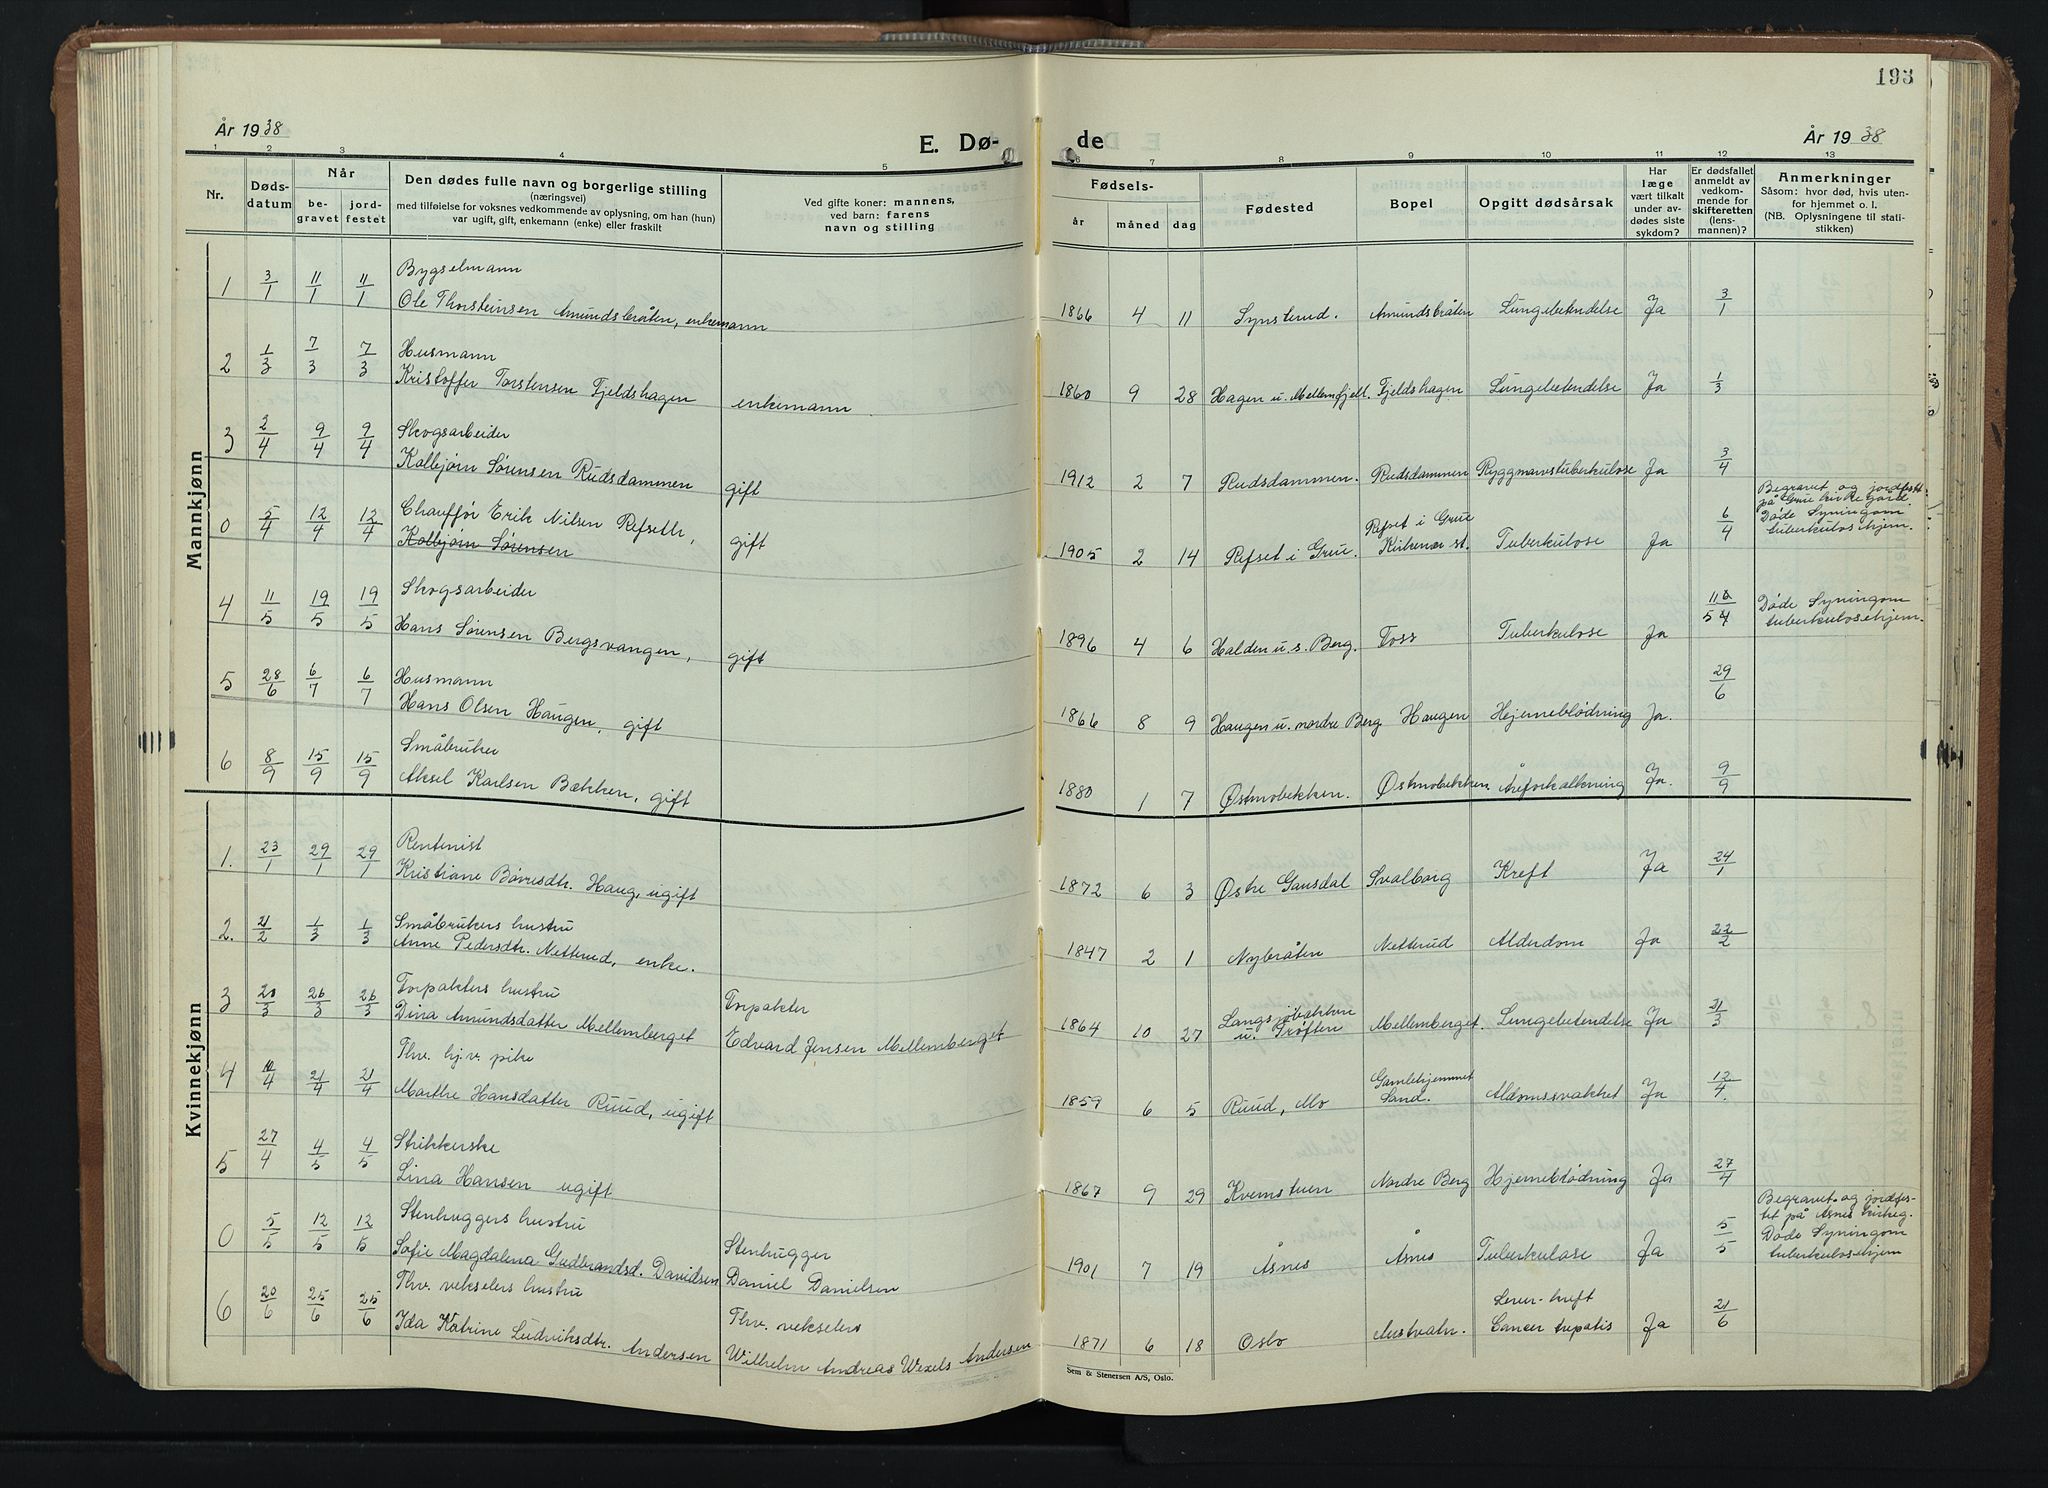 193
År 1938
E. Dø-
de
År 1938
1 2 3 4 5 6 7 8 9 10 11 12 13
Nr.
Dødsdatum
Når
begravet
jordfestet
Den dødes fulle navn og borgerlige stilling
(næringsvei)
med tilføielse for voksnes vedkommende av oplysning, om han (hun)
var ugift, gift, enkemann (enke) eller fraskilt
Ved gifte koner: mannens,
ved barn: farens
navn og stilling
Fødsels-
år måned dag
Fødested
Bopel
Opgitt dødsårsak
Har læge vært tilkalt under avdødes siste sykdom?
Er dødsfallet anmeldt av vedkommende for skifteretten (lensmannen)?
Anmerkninger
Såsom: hvor død, hvis utenfor hjemmet o. l.
(NB. Oplysningene til statistikken)
Mannkjønn
1 3/1 11/1 11/1 Bygselmann
Ole Thorsteinsen Amundsbråten, enkemann 1866 4 11 Synsterud. Amundsbråten Lungebetendelse Ja 3/1
2 1/3 7/3 7/3 Husmann
Kristoffer Torstensen Fjeldshagen enkemann 1860 9 28 Hagen u. Mellemfjell. Fjeldshagen Lungebetendelse Ja 1/3
3 2/4 9/4 9/4 Skogsarbeider
Kolbjørn Sørensen Rudsdammen gift 1912 2 7 Rudsdammen. Rudsdammen Ryggmarvstuberkulose Ja 3/4
0 5/4 12/4 12/4 Chauffør Erik Nilsen Refseth, gift
Kolbjørn Sørensen 1905 2 14 Refset i Grue Refset i Grue Kirkenær st. Tuberkulose Ja 6/4 Begravet og jordfest
på Grue kirkegård
Døde Syningom
tuberkulosehjem.
4 11/5 19/5 19/5 Skogsarbeider
Hans Sørensen Bergsvangen, gift 1896 4 6 Halden u. s. Berg. Foss Tuberkulose Ja Døde Syningom
tuberkulosehjem.
5 28/6 6/7 6/7 Husmann
Hans Olsen Haugen, gift 1866 8 9 Haugen u. nordre Berg Haugen Hejerneblødning Ja. 29/6
6 8/9 15/9 15/9 Småbruker
Aksel Karlsen Bækken, gift 1880 1 7 Østmobekken. Østmobekken Åreforkalkning Ja. 9/9
Kvinnekjønn
1. 23/1 29/1 29/1 Rentenist
Kristiane Bøvresdtr. Haug, ugift 1872 6 3 Østre Gausdal Svalborg Kreft Ja 24/1
2. 21/2 1/3 1/3 Småbrukers hustru
Anne Pedersdtr. Netterud, enke. 1847 2 1 Nybråten Netterud Alderdom Ja 22/2
3 20/3 26/3 26/3 Forpakters hustru Forpakter
Dina Amundsdatter Mellemberget Edvard Jensen Mellemberget 1864 10 27 Langsjøbakken
u. Trøften Mellemberget. Lungebetendelse Ja 21/3
4 10/4 21/4 21/4 Thv. hj. v. pike
Marthe Hansdatter Ruud, ugift 1859 6 5 Ruud, Mo Gamlehjemmet
Sand. Aldomssvakhet Ja 12/4.
5 27/4 4/5 4/5 Strikkerske
Lina Hansen ugift 1867 9 29 Kvernstuen Nordre Berg Hjerneblødning Ja 27/4
0 5/5 12/5 12/5 Stenhuggers hustru Stenhugger
Sofie Magdalena Gudbrandsd. Davidsen Daniel Danielsen 1901 7 19 Åsnes Åsnes Tuberkulose Ja 5/5 Begravet og jordfes-
tet på Åsnes kirkeg.
Døde Syningom
tuberkulosehjem
6 20/6 25/6 25/6 Thv. vekselers hustru Thv. vekselers
Ida Katrine Ludviksdtr. Andersen Wilhelm Andreas Wexels Andersen 1871 6 18 Oslo Austvatn. Lever-kreft
Cancer hepatis Ja 21/6
Sem & Stenersen A/S, Oslo.